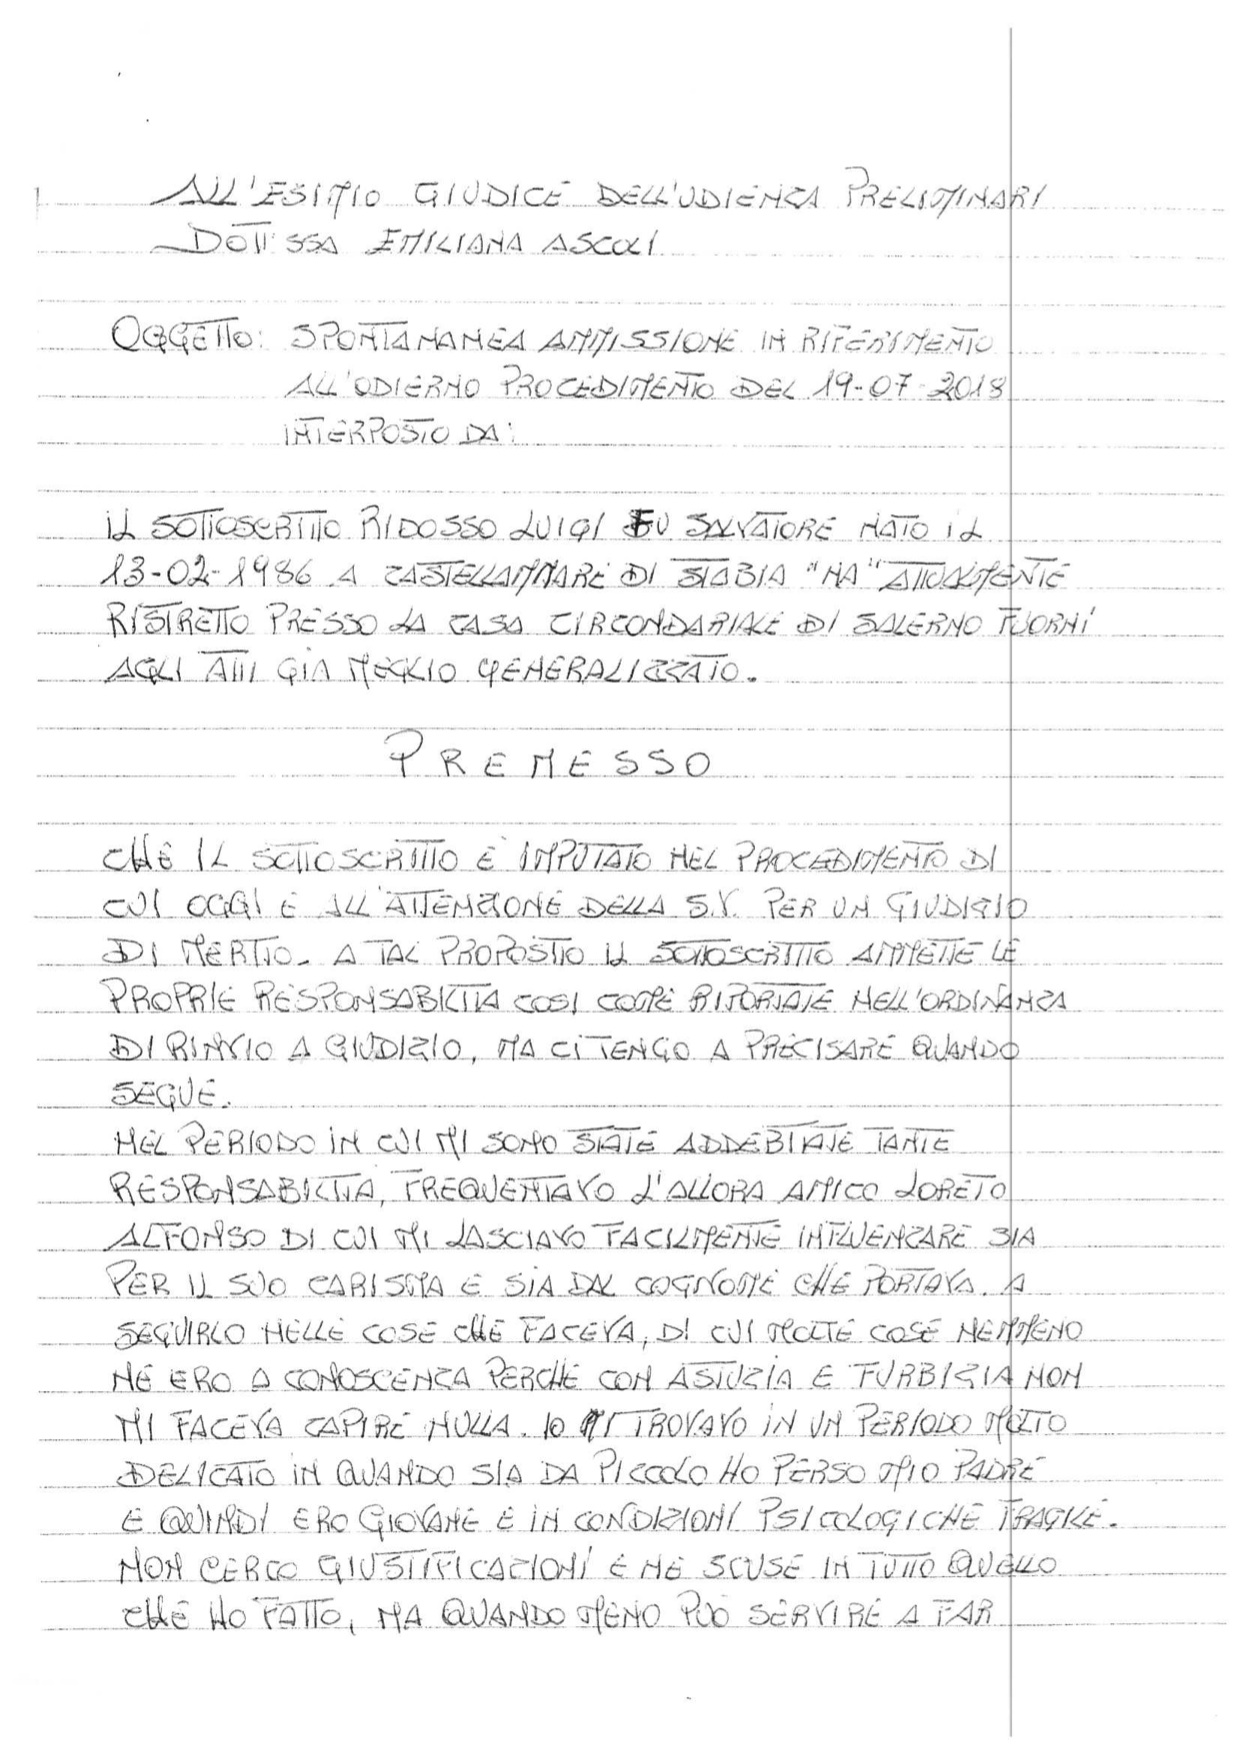 ALL'ESIMIO GIUDICE DELL'UDIENZA PRELIMINARI
DOTT:SSA EMILIANA ASCOLI
OGGETTO: SPONTANANEA AMMISSIONE IN RIFERIMENTO
ALL'ODIERNO PROCEDIMENTO DEL 19-07-2018
INTERPOSTO DA:
IL SOTTOSCRITTO RIDOSSO LUIGI FU SALVATORE NATO IL
13-02-1986 A CASTELLAMMARE DI STABIA "NA" ATTUALMENTE
RISTRETTO PRESSO LA CASA CIRCONDARIALE DI SALERNO FUORNI
AGLI ATTI GIA MEGLIO GENERALIZZATO.
PREMESSO
CHE IL SOTTOSCRITTO E IMPUTATO NEL PROCEDIMENTO DI
CUI OGGI E ALL'ATTENZIONE DELLA S.V. PER UN GIUDIZIO
DI MERTIO. A TAL PROPOSTIO IL SOTTOSCRITTO AMMETTE LE
PROPRIE RESPONSABILTIA COSI COME RIPORTATE NELL'ORDINANZA
DI RINVIO A GIUDIZIO, MA CI TENGO A PRECISARE QUANDO
SEGUE.
NEL PERIODO IN CUI MI SONO STATE ADDEBTIATE TANTE
RESPONSABILTIA, FREQUENTAVO L'ALLORA AMICO LORETO
ALFONSO DI CUI MI LASCIAVO FACILMENTE INFLUENZARE SIA
PER IL SUO CARISMA E SIA DAL COGNOME CHE PORTAVA. A
SEGUIRLO NELLE COSE CHE FACEVA, DI CUI MOLTE COSE NEMMENO
NE ERO A CONOSCENZA PERCHE CON ASTUZIA E FURBIZIA NON
MI FACEVA CAPIRE NULLA. IO MI TROVAVO IN UN PERIODO MOLTO
DELICATO IN QUANDO SIA DA PICCOLO HO PERSO MIO PADRE
E QUINDI ERO GIOVANE E IN CONDIZIONI PSICOLOGICHE FRAGILE.
NON CERCO GIUSTIFICAZIONI E NE SCUSE IN TUTTO QUELLO
CHE HO FATTO, MA QUANDO MENO PUO SERVIRE A FAR